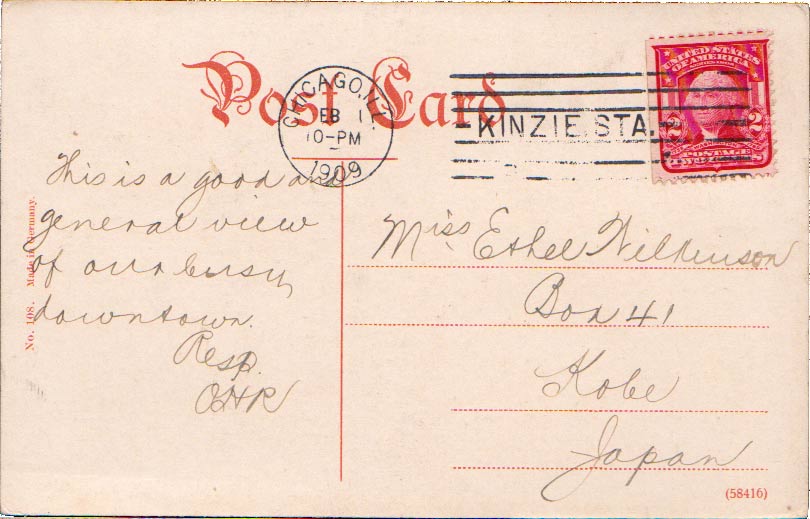 Post Card
CHICAGO, ILL.
FEB 1
10-PM
1909
KINZIE STA.
UNITED STATES
OF AMERICA
2 2
POSTAGE
This is a good and
general view
of our busy
downtown.
Resp.
OHR
Miss Ethel Wilkinson
Box 41
Kobe
Japan
No. 108. Made in Germany.
(58416)